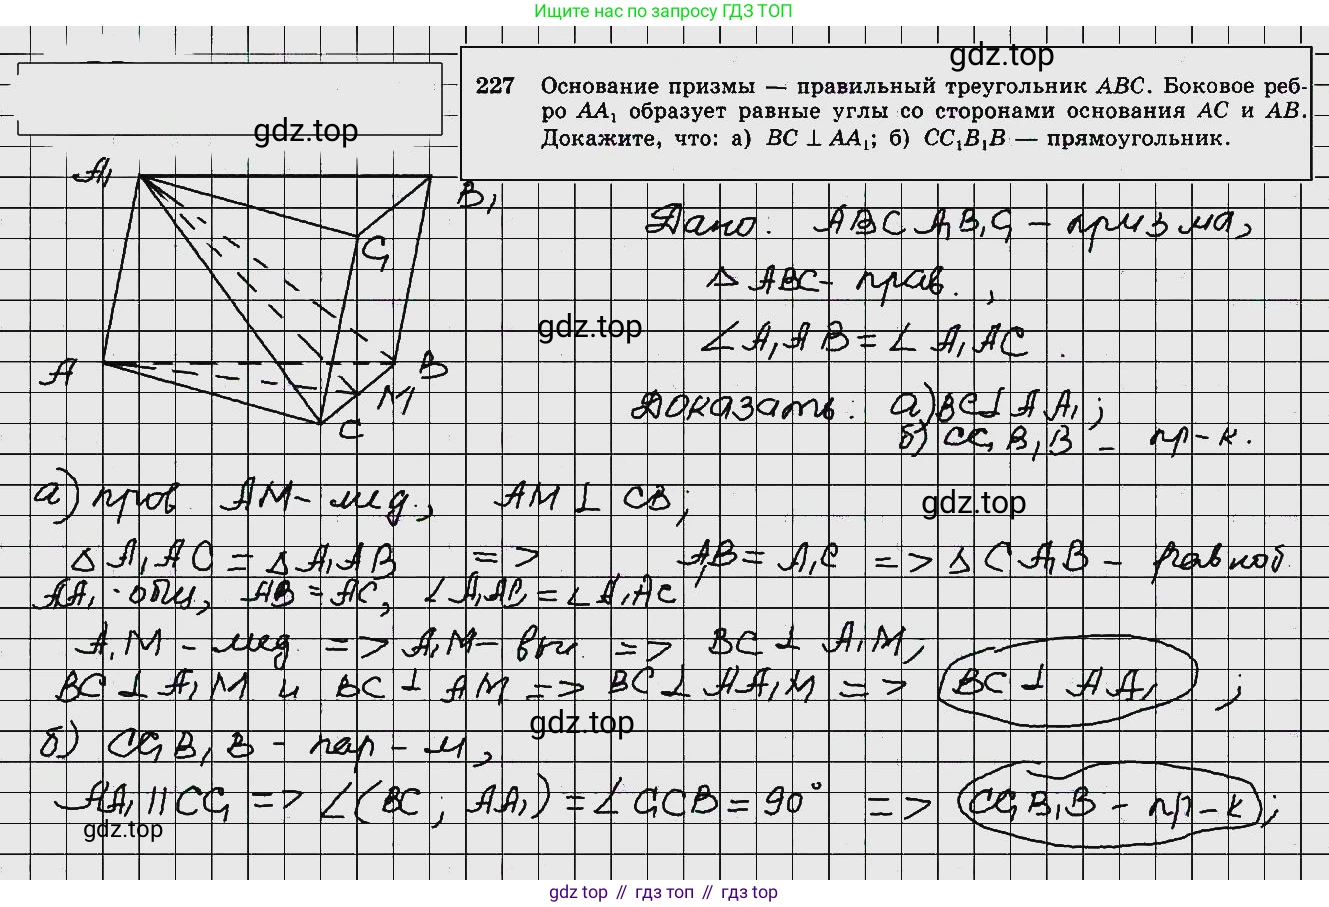 Ищите нас по запросу ГДЗ ТОП
gdz.top
227 Основание призмы — правильный треугольник ABC. Боковое реб-
ро AA₁ образует равные углы со сторонами основания AC и AB.
Докажите, что: а) BC ⊥ AA₁; б) CC₁B₁B — прямоугольник.
gdz.top
A₁
B₁
C₁
A
B
M
C
Дано: ABCA₁B₁C₁ – призма,
△ ABC – прав.,
gdz.top
∠ A₁AB = ∠ A₁AC.
Доказать: а) BC ⊥ AA₁;
б) CC₁B₁B – пр-к.
а) пров AM – мед., AM ⊥ CB;
gdz.top
△ A₁AC = △ A₁AB => A₁B = A₁C => △ CA₁B – равноб
AA₁ - общ, AB = AC, ∠ A₁AB = ∠ A₁AC
A₁M – мед => A₁M – выс => BC ⊥ A₁M;
BC ⊥ A₁M и BC ⊥ AM => BC ⊥ AA₁M => BC ⊥ AA₁;
gdz.top
б) CC₁B₁B – пар-м,
AA₁ || CC₁ => ∠(BC; AA₁) = ∠ C₁CB = 90° => CC₁B₁B – пр-к;
gdz.top
gdz top // гдз топ // gdz top